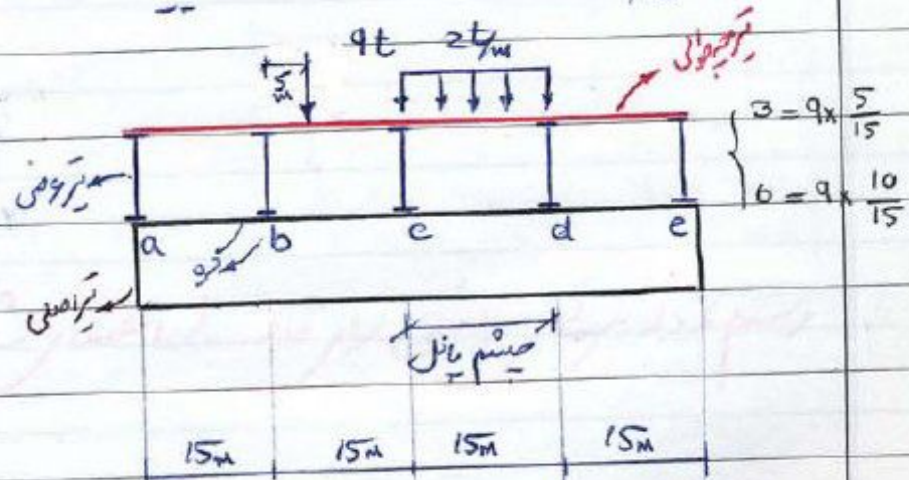 9t 2t/m
5m
تیرچه طولی
3 = 9 × 5/15
6 = 9 × 10/15
تیر عرضی
a b c d e
گره
تیر اصلی
چشمه پانل
15m 15m 15m 15m